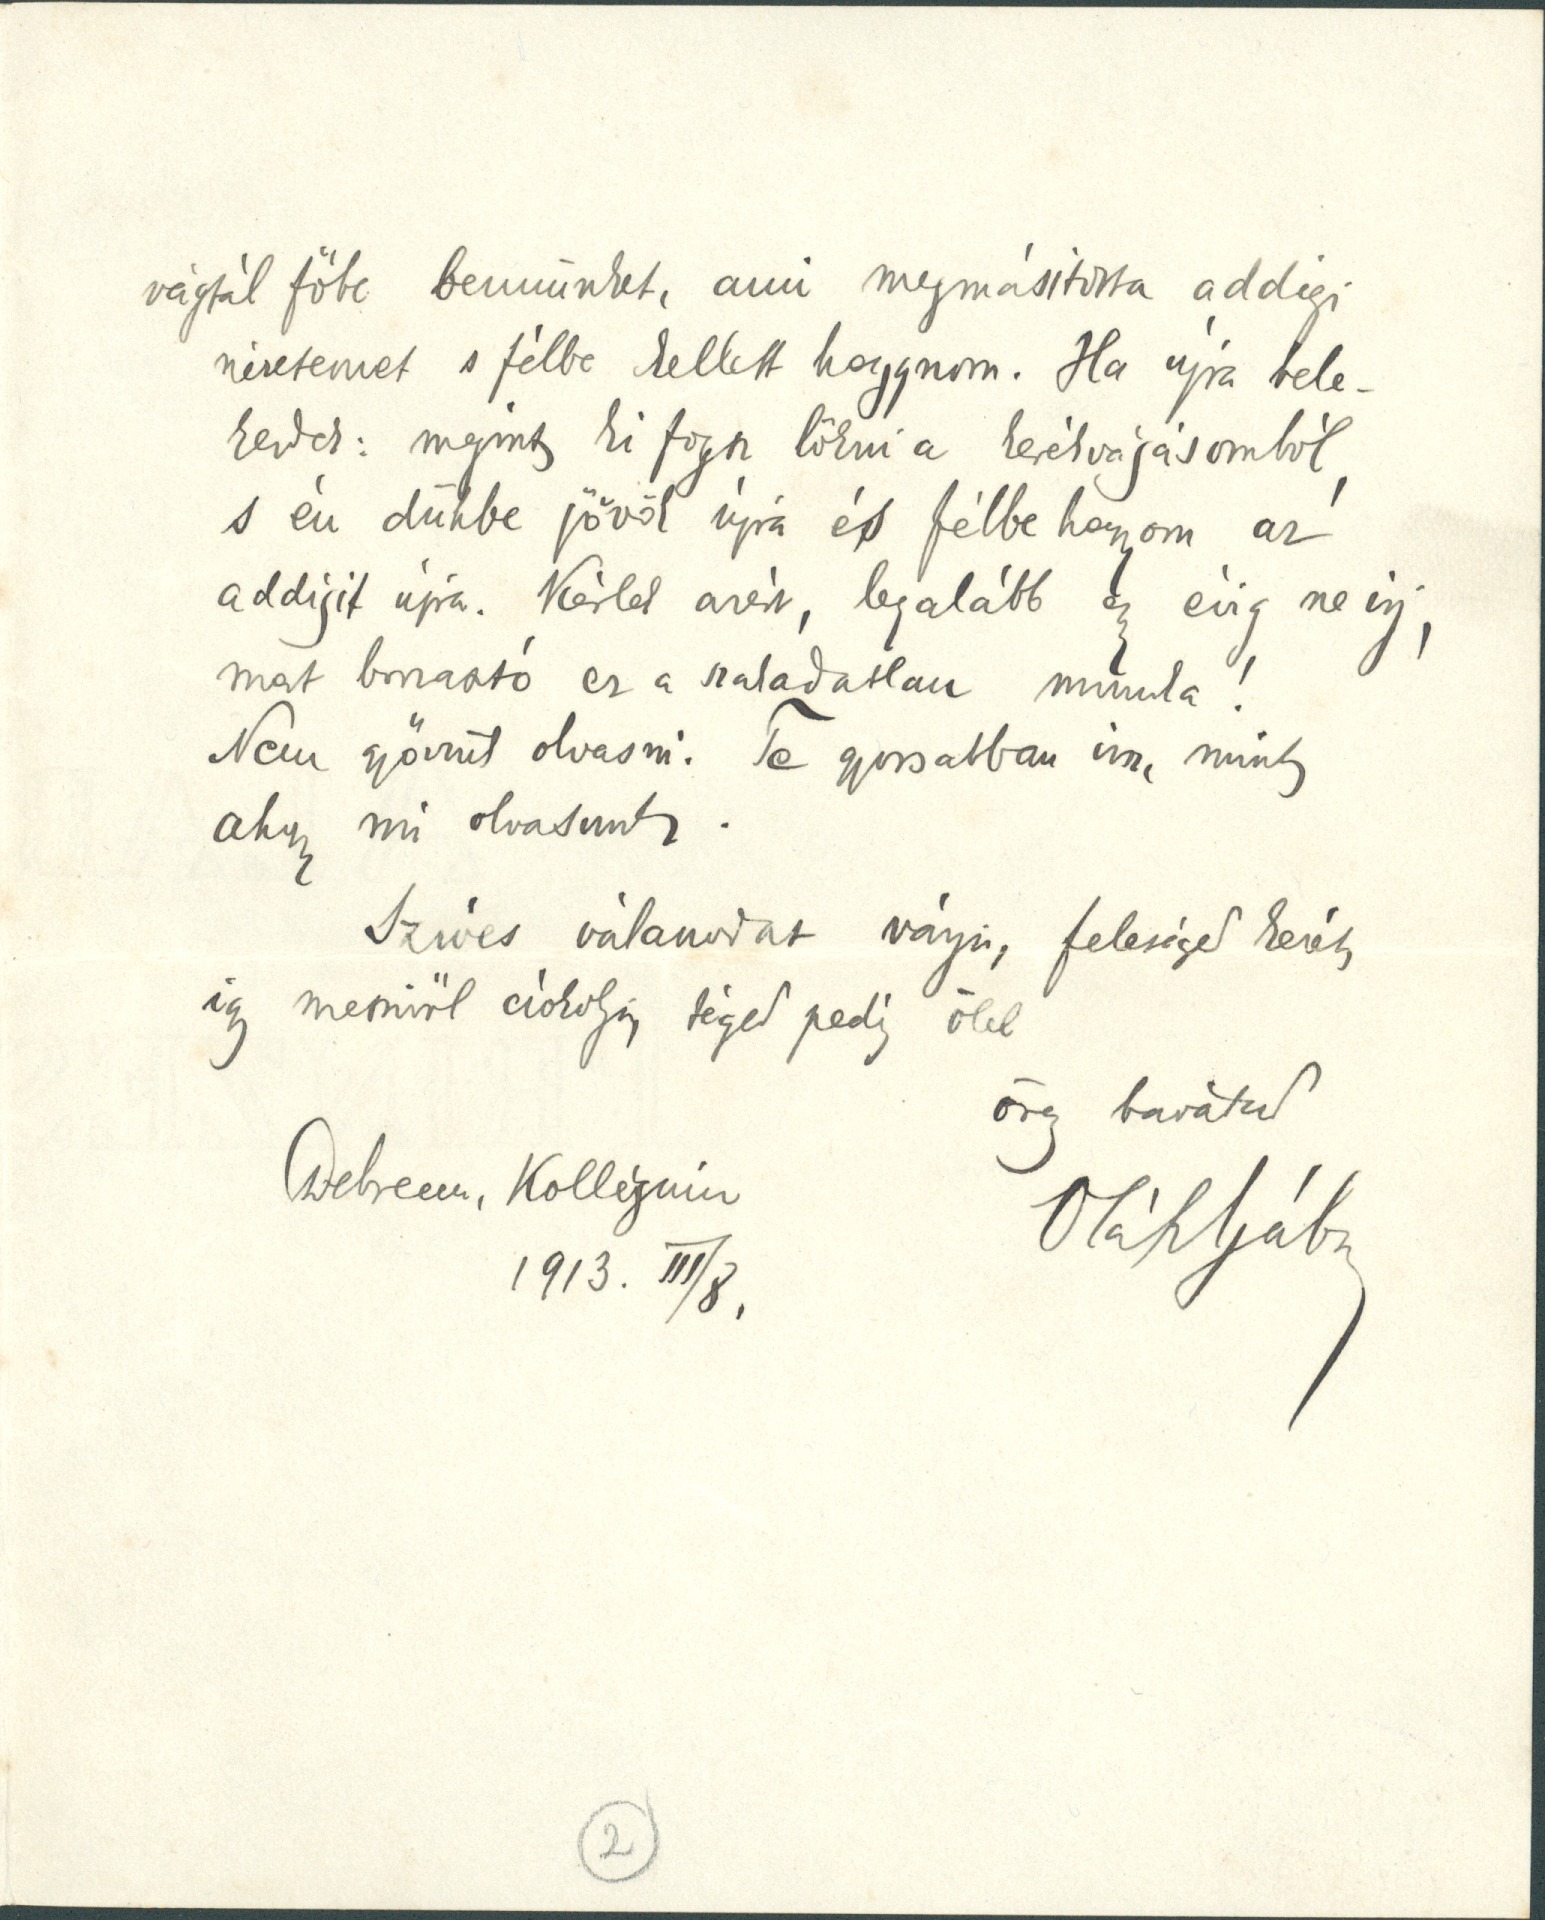 vágtál főbe bennünket, ami megmásította addigi
nézetemet s félbe kellett hagynom. Ha újra bele-
kezdek: megint ki fogsz lökni a kerékvágásomból,
s én dühbe jövök újra és félbe hagyom az
addigit újra. Kérlek azért, legalább egy évig ne írj,
mert borzasztó ez a szakadatlan munka!
Nem győzünk olvasni. Te gyorsabban írsz, mint
ahogy mi olvasunk.
Szíves válaszodat várja, feleséged kezét
így messziről csókolja, téged pedig ölel
öreg barátod
Oláh Gábor
Debrecen, Kollégium
1913. III/8.
2